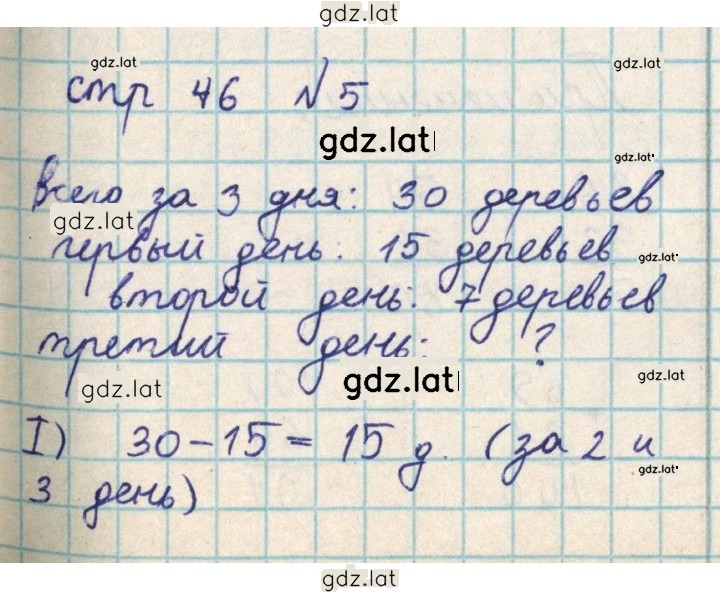 gdz.lat
gdz.lat gdz.lat
стр 46 №5
gdz.lat
gdz.lat
Всего за 3 дня: 30 деревьев
gdz.lat
первый день: 15 деревьев
gdz.lat
второй день: 7 деревьев
третий день: ?
gdz.lat gdz.lat gdz.lat
I) 30-15= 15 д. (за 2 и
gdz.lat
3 день)
gdz.lat